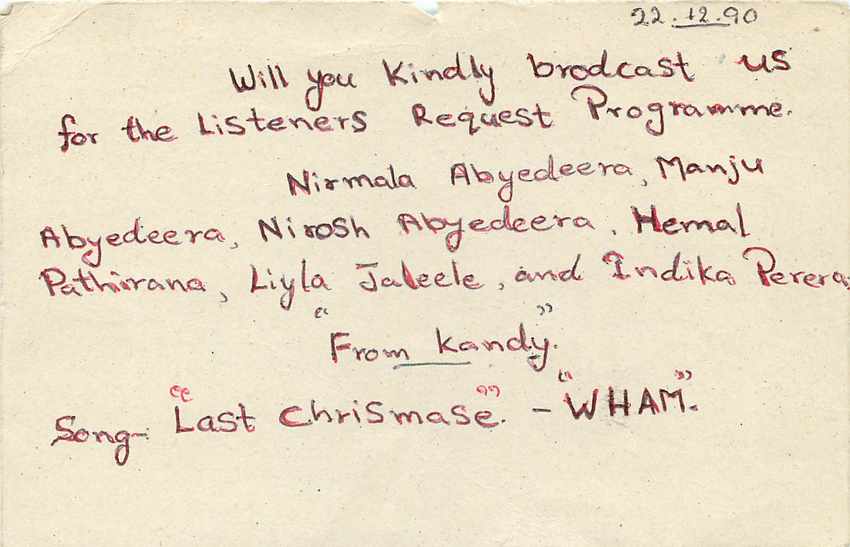 22.12.90
Will you Kindly brodcast us
for the Listeners Request Programme.
Nirmala Abyedeera, Manju
Abyedeera, Nirosh Abyedeera, Hemal
Pathirana, Liyla Jaleele, and Indika Perera,
"From Kandy".
Song- "Last Chrismase". - "WHAM".